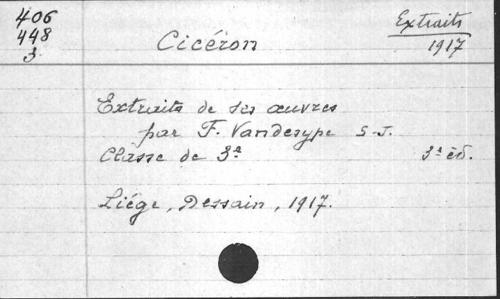 406
448
3
Cicéron
Extraits
1917
Extraits de ses œuvres
par F. Vandesype S.J.
Classe de 3ᵉ 3ᵉ éd.
Liége, Dessain, 1917.